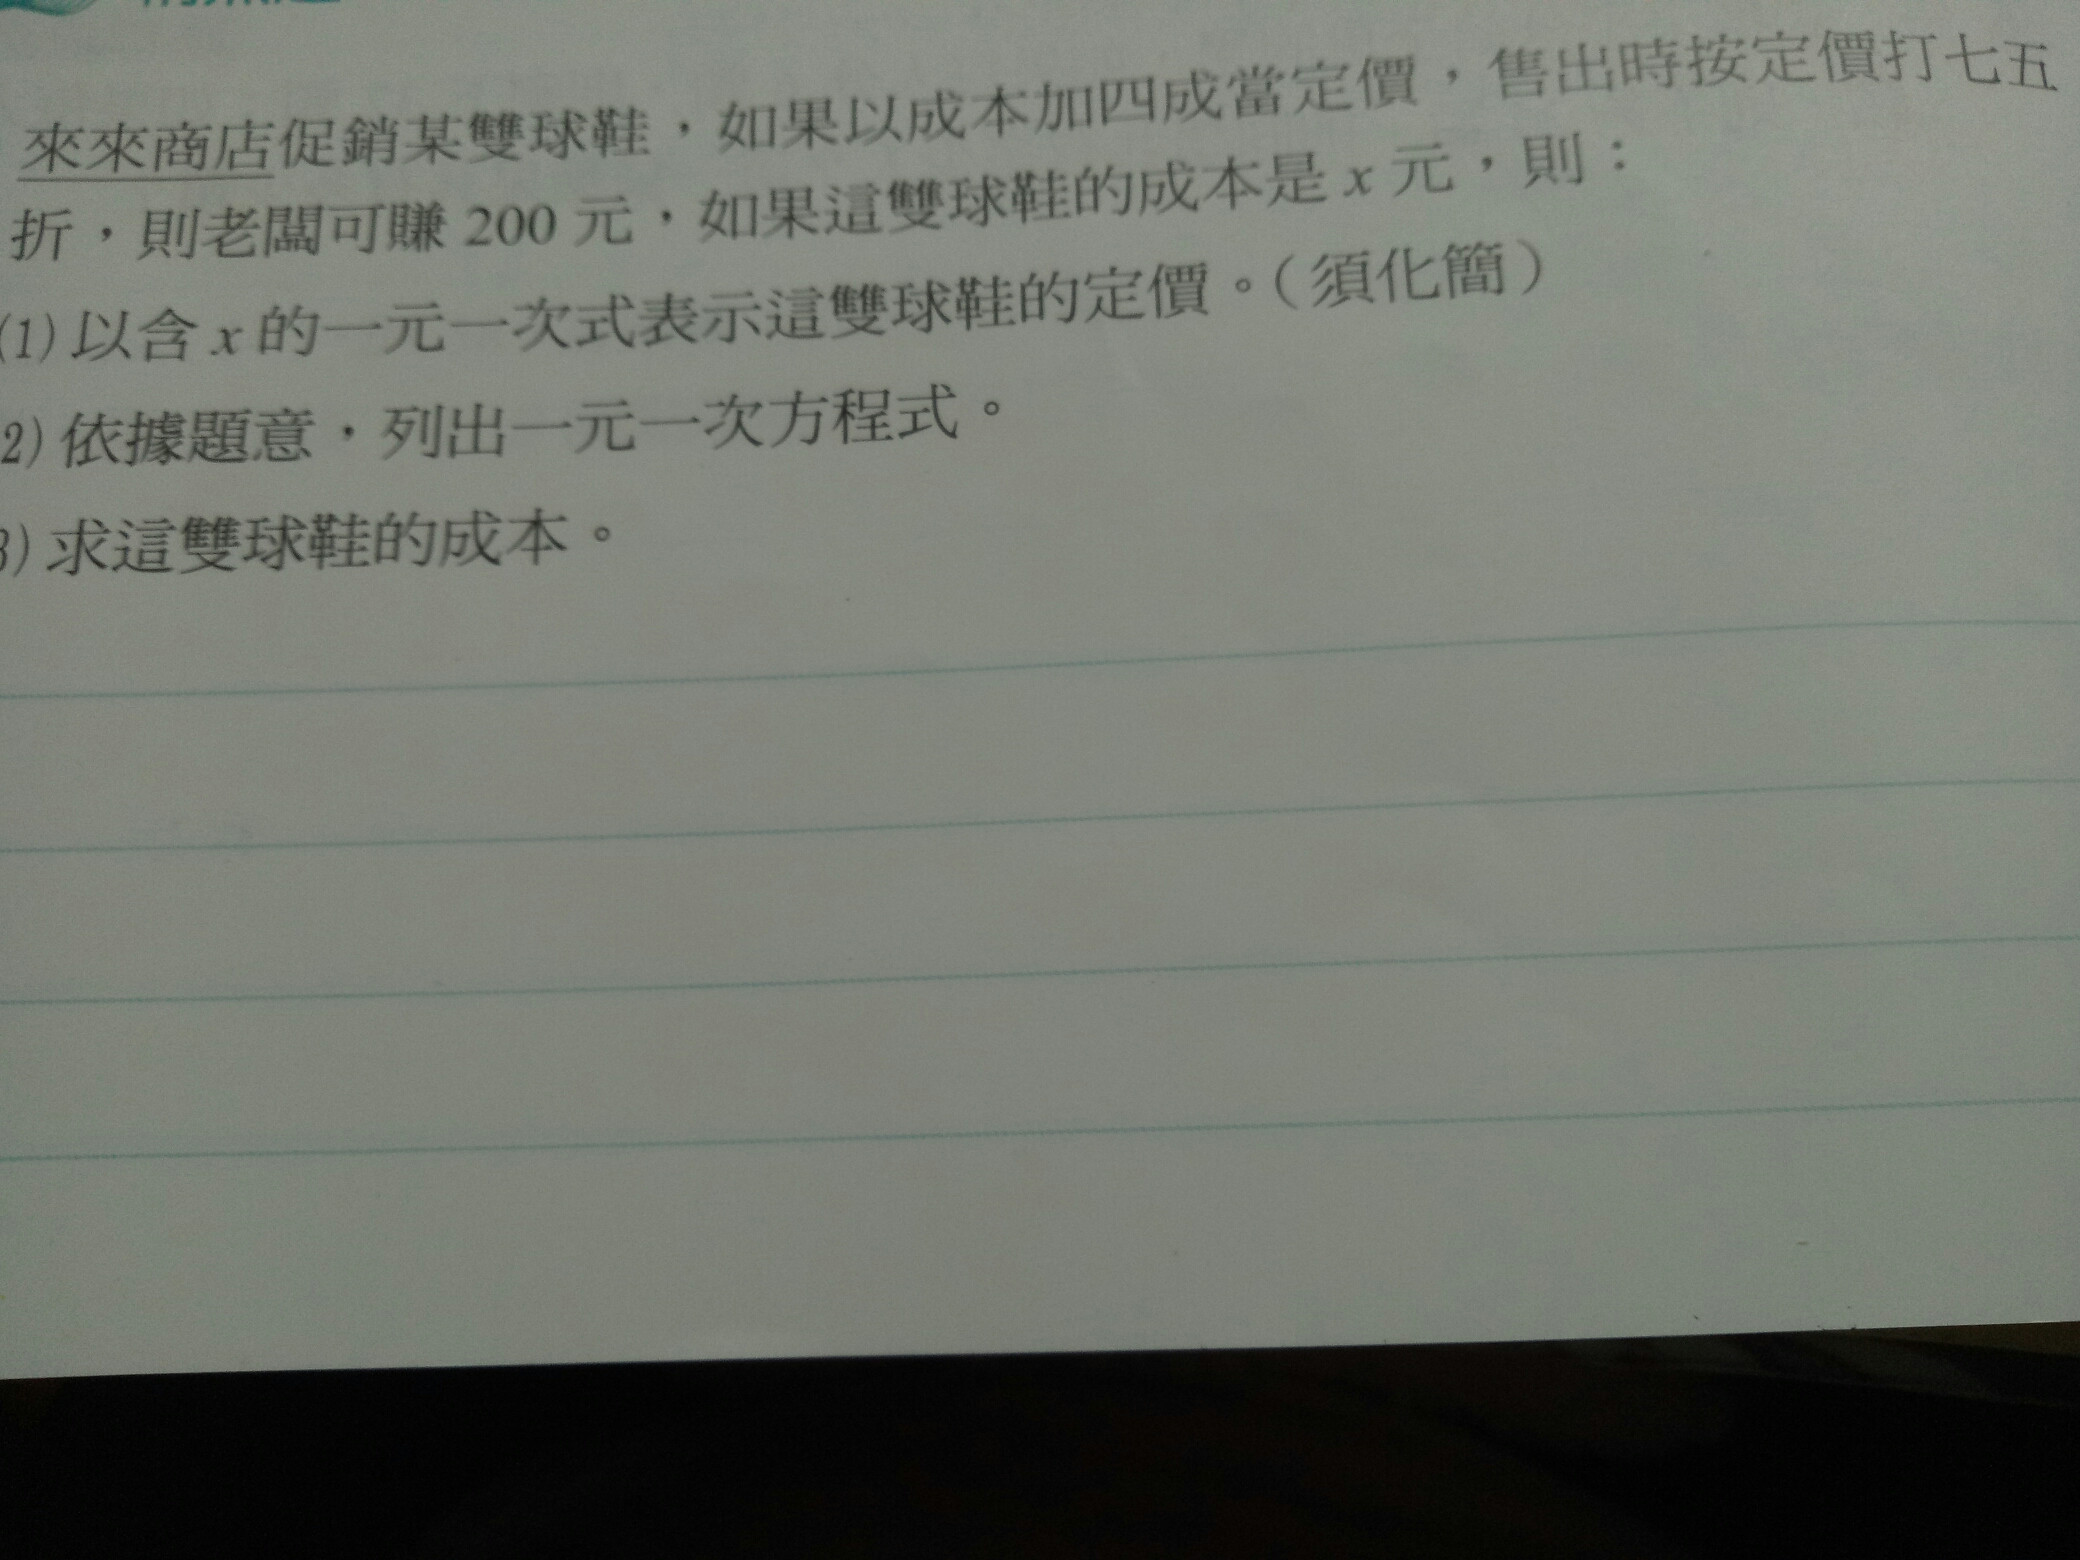 來來商店促銷某雙球鞋，如果以成本加四成當定價，售出時按定價打七五
折，則老闆可賺 200 元，如果這雙球鞋的成本是 x 元，則：
(1) 以含 x 的一元一次式表示這雙球鞋的定價。（須化簡）
2) 依據題意，列出一元一次方程式。
3) 求這雙球鞋的成本。